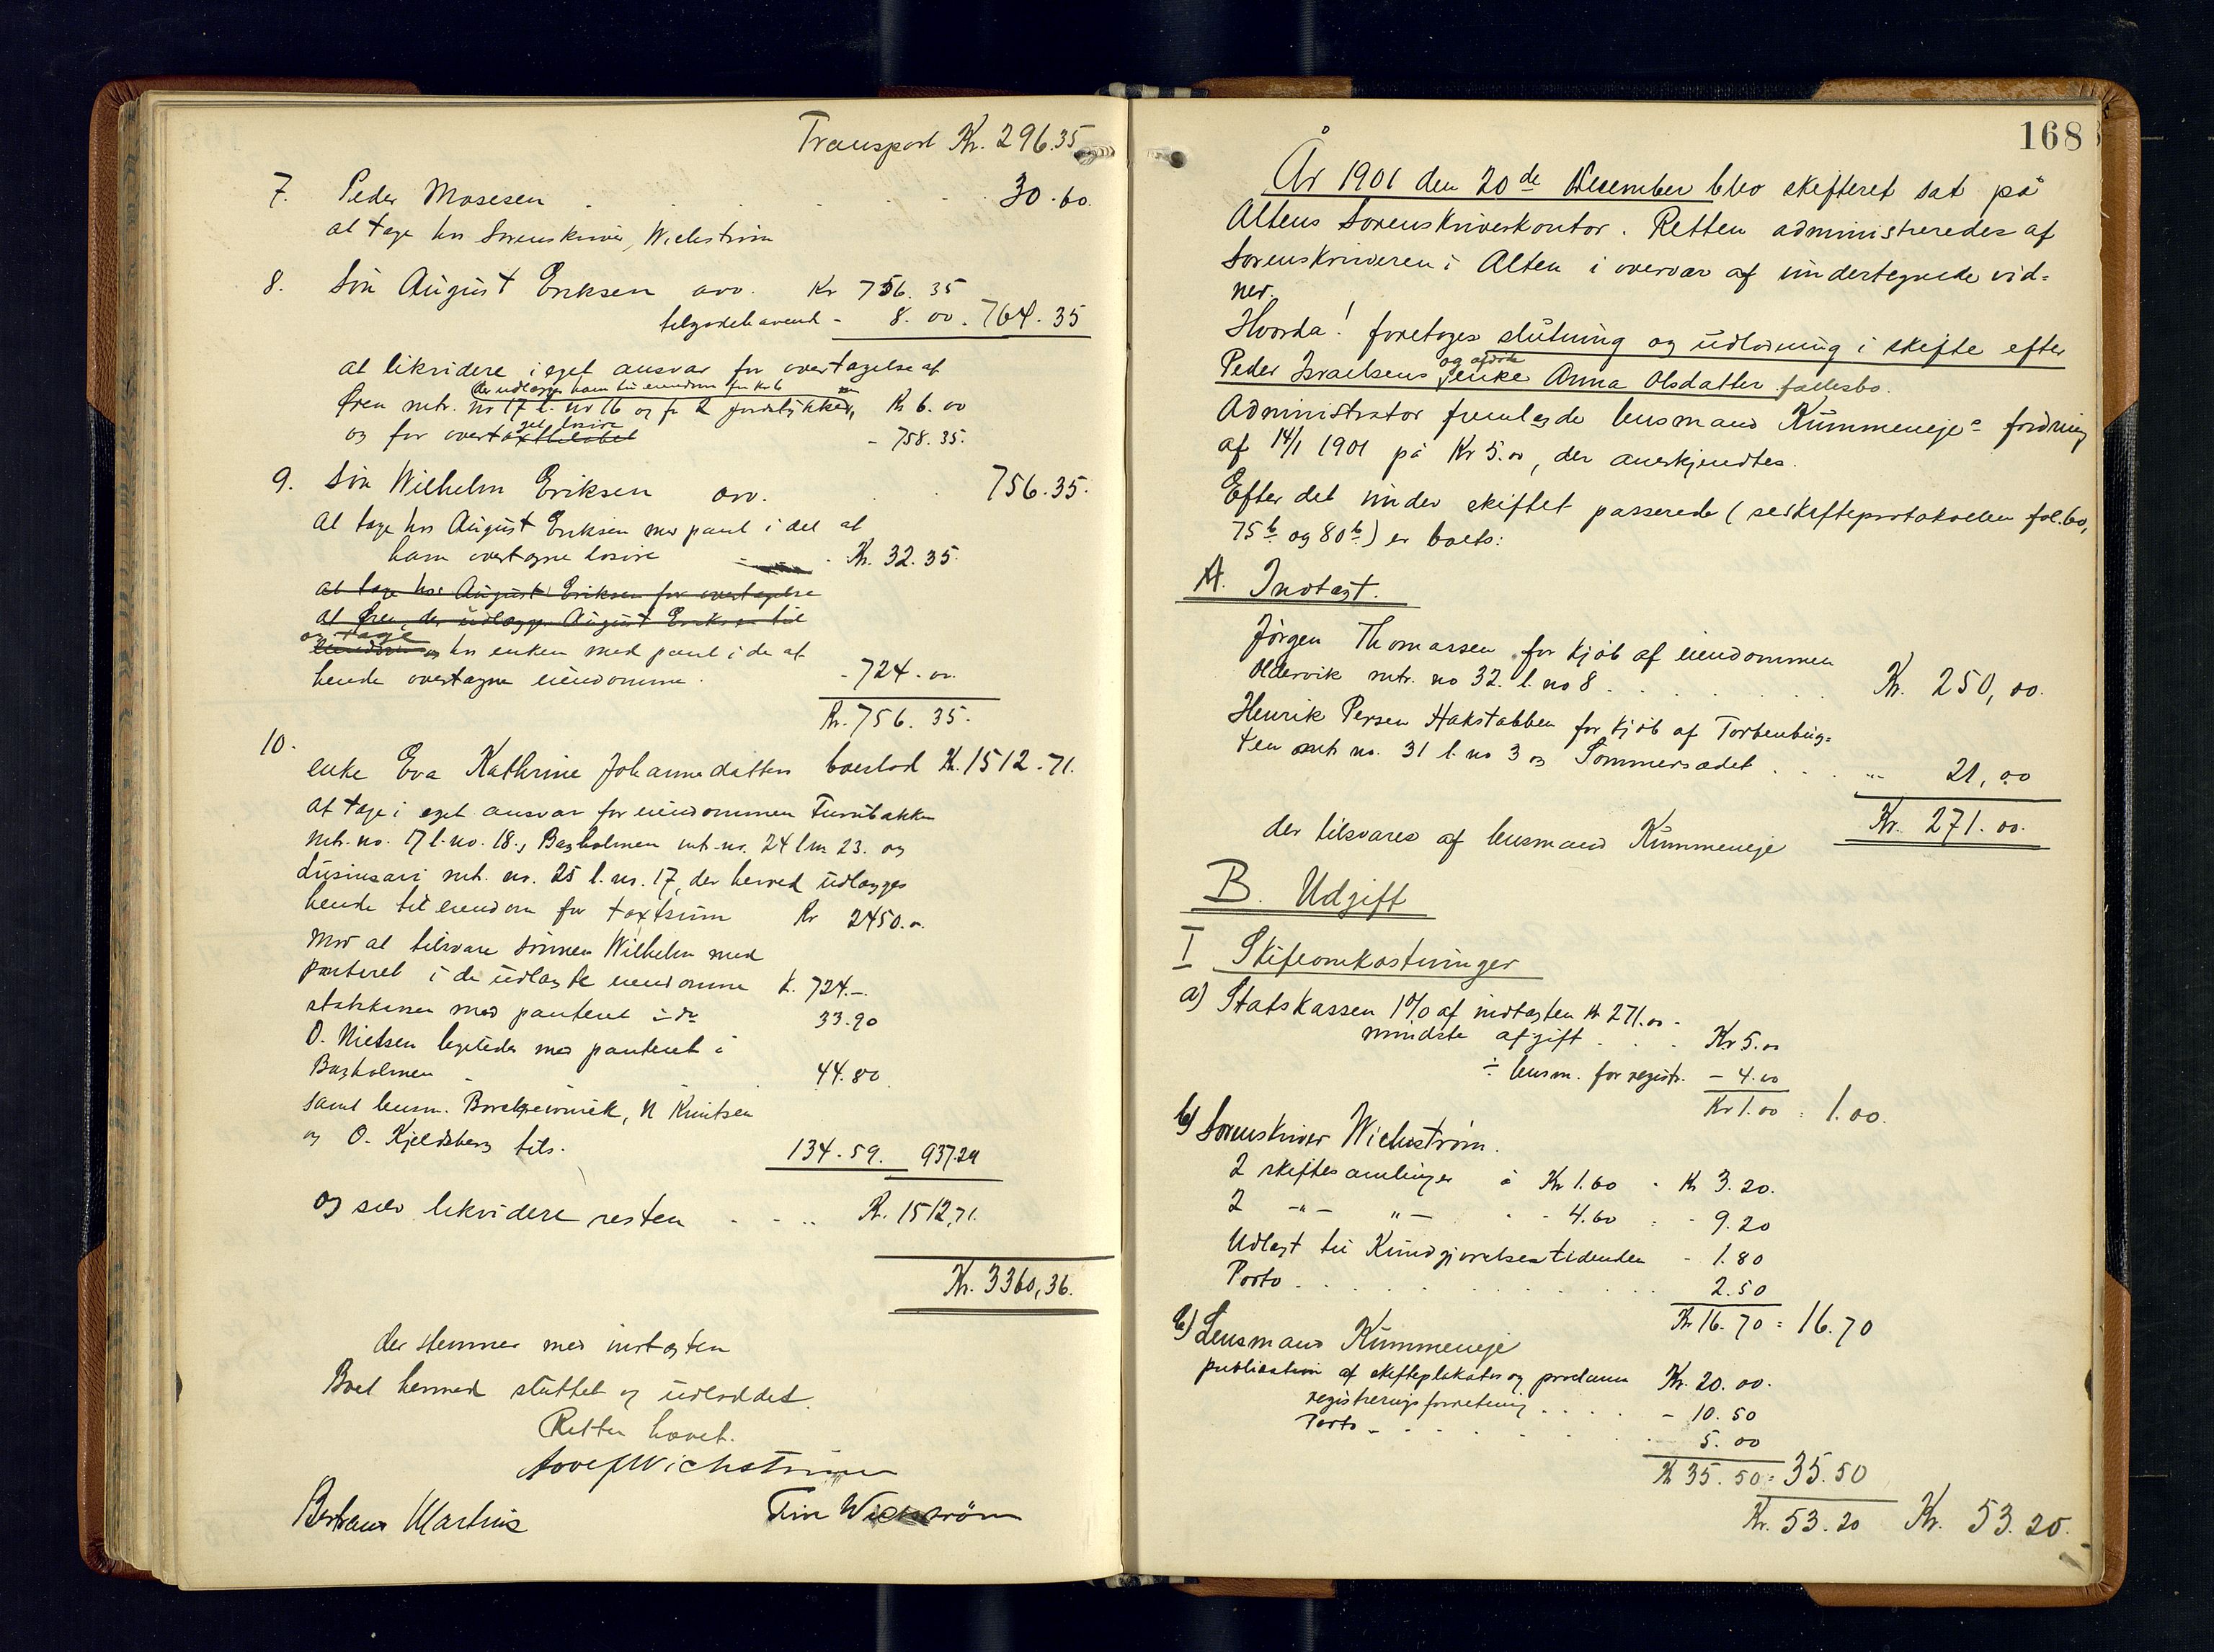 Transport Kr. 296.35
7. Peder Mosesen . . . . . . 30.60.
at tage hos Sorenskriver Wichstrøm
8. Søn August Eriksen arv. Kr 756.35
tilgodehavend - 8.00. 764.35
at likvidere i eget ansvar for overtagelse af
der udlægges ham til eiendom for kr 6
Øren mtr. no 17 l. no 16 og for 2 jordstykker, Kr 6.00
og for overtaget løsøre - 758.35.
9. Søn Wilhelm Eriksen arv. . . 756.35.
At tage hos August Eriksen mod pant i det af
ham overtagne løsøre - . Kr. 32.35.
at tage hos August Eriksen for overtagelse
af Øren, der udlægges August Eriksen til
og tage
eiendom og hos enken med pant i de af
hende overtagne eiendomme. - 724.00.
Kr. 756.35.
10.
enke Eva Kathrine Johannesdatters boeslod Kr. 1512.71.
at tage i eget ansvar for eiendommen Furubakken
mtr. no. 17 l. no. 18, Bagholmen mt. no. 24 l no 23. og
Lusinsari mt. no. 25 l. no. 17, der herved udlægges
hende til eiendom for taxtsum Kr 2450.00
mod at tilsvare sønnen Wilhelm med
panteret i de udlagte eiendomme k. 724.-
statskassen mod panteret i do 33.90
O. Nielsen ligeledes mod panteret i
Bagholmen - . 44.80
samt lensm. Borchgrevinck, N Knutsen
og O. Kjeldsberg tils. 134.59. 937.29
og selv likvidere resten - - .. Kr. 1512,71.
Kr. 3360,36.
der stemmer med indtægten
Boet hermed sluttet og udloddet.
Retten hævet.
Adolf Wichstrøm
Bertrand Martins Finn Wichstrøm
168
År 1901 den 20de December blev skifteret sat på
Altens Sorenskriverkontor. Retten administreredes af
Sorenskriveren i Alten i overvær af undertegnede vid=
ner.
Hvorda! foretoges slutning og udlodning i skifte efter
og afdøde
Peder Israelsens enke Anna Olsdatter fællesbo.
Administrator fremlagde lensmand Kummenejes fordring
af 14/1 1901 på Kr 5.00, der anerkjendtes.
Efter det under skiftet passerede (se skifteprotokollen fol. 60,
75b og 80b) er boets:
A. Indtægt.
Jörgen Thomassen for kjøb af eiendommen
Oldervik mtr. no 32. l. no 8 . . . . . . Kr. 250,00.
Henrik Persen Hakstabben for kjøb af Torbenbug=
ten mt no. 31 l. no 3 og Sommersædet . . . „ 21,00
Kr. 271.00.
der tilsvares af lensmand Kummeneje
B. Udgift
I Skifteomkostninger
a) Statskassen 1% af indtægten kr 271.00 -
mindste afgift . . . Kr 5.00
÷ lensm. for registr. - 4.00
Kr 1.00 = 1.00.
b) Sorenskriver Wichstrøm.
2 skiftesamlinger à Kr 1.60 - Kr 3.20.
2 -„- „- - - 4.60 = - 9.20
Udlagt til Kundgjørelsestidenden - 1.80
Porto . . . . . . . . . 2.50
Kr 16.70 = 16.70
c) Lensmand Kummeneje
publication af skifteplakater og proclama Kr. 20.00.
registreringsforretning . . . . - 10.50
Porto - . . . . . . 5.00
Kr 35.50 = 35.50
Kr. 53.20 Kr. 53.20.